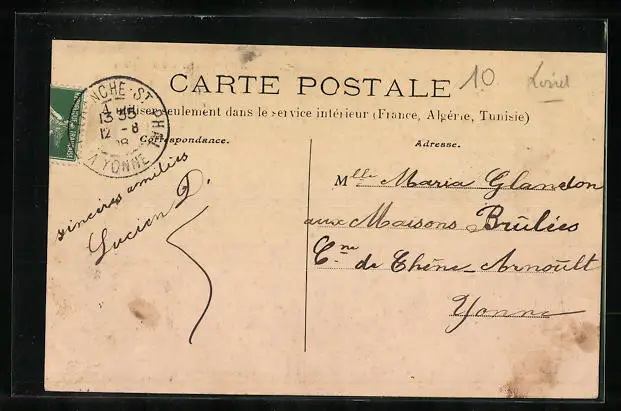 CARTE POSTALE
10
Loiret
utiliser seulement dans le service intérieur (France, Algérie, Tunisie)
Correspondance.
Adresse.
13 35
12 - 8
08
YONNE
sincères amitiés
Lucien D.
Mlle Maria Glandon
aux Maisons Brûlées
Cne de Chêne-Arnoult
Yonne